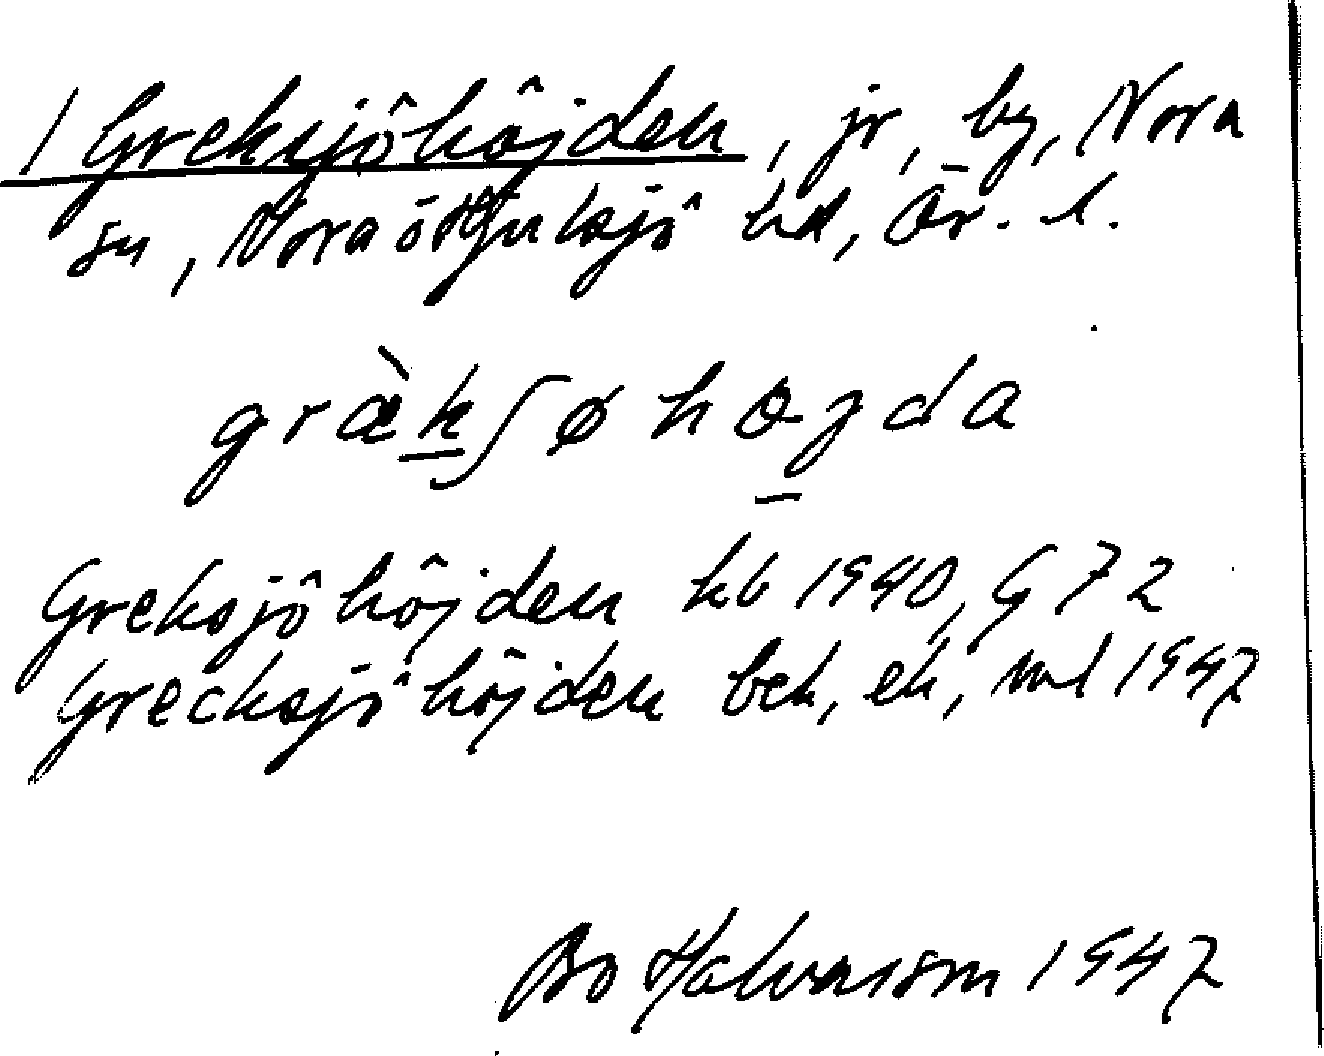 / Greksjöhöjden, jr, by, Nora
sn, Nora o Hjulsjö hd, Ör. l.
græ̀kʃøhøjda
Greksjöhöjden kb 1940, G 72
Grecksjöhöjden bek, ek, ml 1947
Bo Halvarson 1947